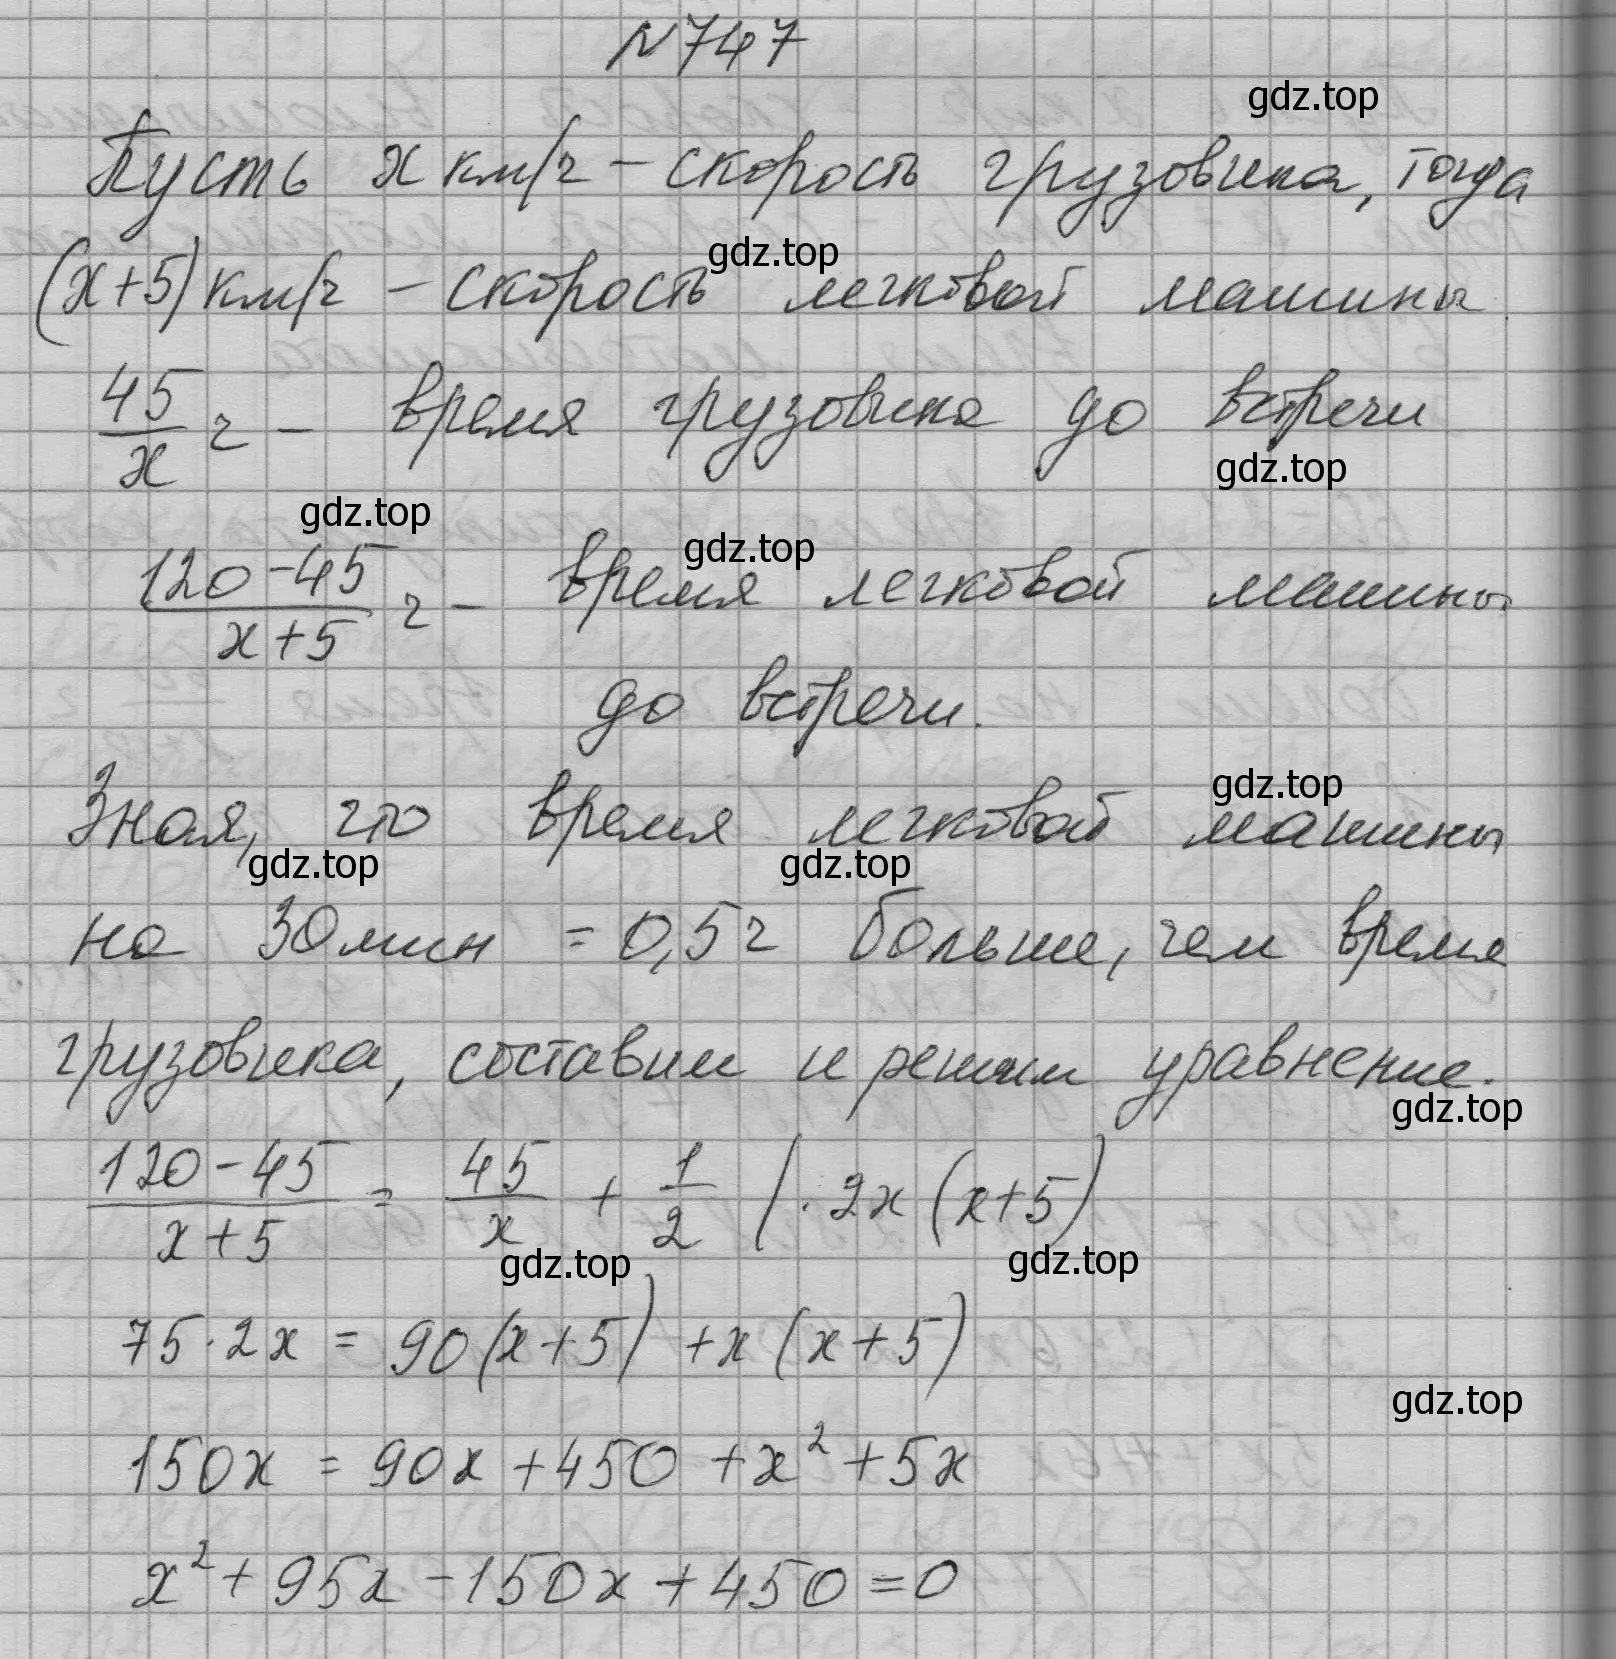 N 747
gdz.top
Пусть x км/ч – скорость грузовика, тогда
gdz.top
(x+5) км/ч – скорость легковой машины.
45/x ч – время грузовика до встречи
gdz.top
gdz.top
gdz.top
(120-45)/(x+5) ч – время легковой машины
до встречи.
gdz.top
Зная, что время легковой машины
gdz.top
gdz.top
на 30 мин = 0,5 ч больше, чем время
грузовика, составим и решим уравнение.
gdz.top
(120-45)/(x+5) = 45/x + 1/2 | · 2x (x+5)
gdz.top
gdz.top
75·2x = 90(x+5) + x(x+5)
gdz.top
150x = 90x + 450 + x² + 5x
x² + 95x - 150x + 450 = 0